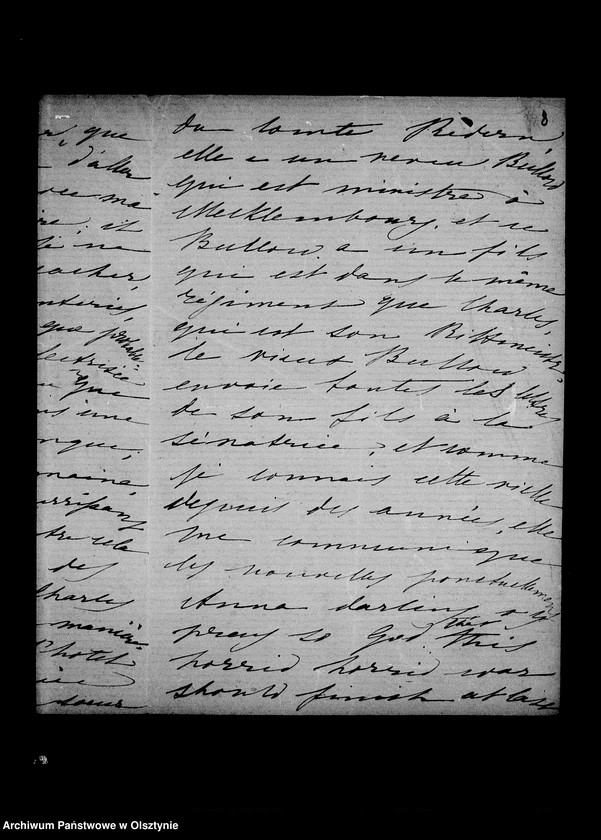 8
r, que
d'aller
vec ma
re, et
ne
que
une
nque,
maine
tre cela
des
Charles
manière
l'hotel
soeur
du comte Rèdern,
elle a un neveu Bullow
qui est ministre à
Mecklembourg, et ce
Bullow a un fils
qui est dans le même
régiment que Charles,
qui est son Rittmeister.
le vieux Bullow
envoie toutes les lettres
de son fils à la
sénatrice, et comme
je connais cette vieille
depuis des années, elle
me communique
les nouvelles ponctuellement
Anna darling
pray to God that this
horrid horrid war
should finish at last
Archiwum Państwowe w Olsztynie